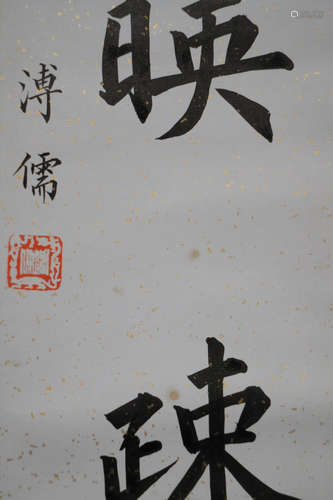 映
疎
溥儒